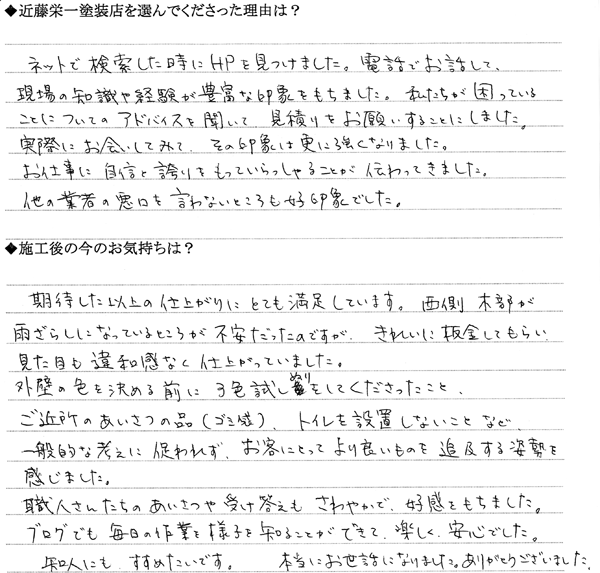 ◆近藤栄一塗装店を選んでくださった理由は?
ネットで検索した時にHPを見つけました。電話でお話して、
現場の知識や経験が豊富な印象をもちました。私たちが困っている
ことについてのアドバイスを聞いて見積りをお願いすることにしました。
実際にお会いしてみて、その印象は更に強くなりました。
お仕事に自信と誇りをもっていらっしゃることが伝わってきました。
他の業者の悪口を言わないところも好印象でした。
◆施工後の今のお気持ちは?
期待した以上の仕上がりにとても満足しています。西側木部が
雨ざらしになっているところが不安だったのですが、きれいに板金してもらい
見た目も違和感なく仕上がっていました。
外壁の色を決める前に3色試しぬりをしてくださったこと、
ご近所のあいさつの品(ゴミ袋)、トイレを設置しないことなど、
一般的な考えに促われず、お客にとってより良いものを追及する姿勢を
感じました。
職人さんたちのあいさつや受け答えもさわやかで、好感をもちました。
ブログでも毎日の作業を様子を知ることができて、楽しく、安心でした。
知人にもすすめたいです。 本当にお世話になりました。ありがとうございました。